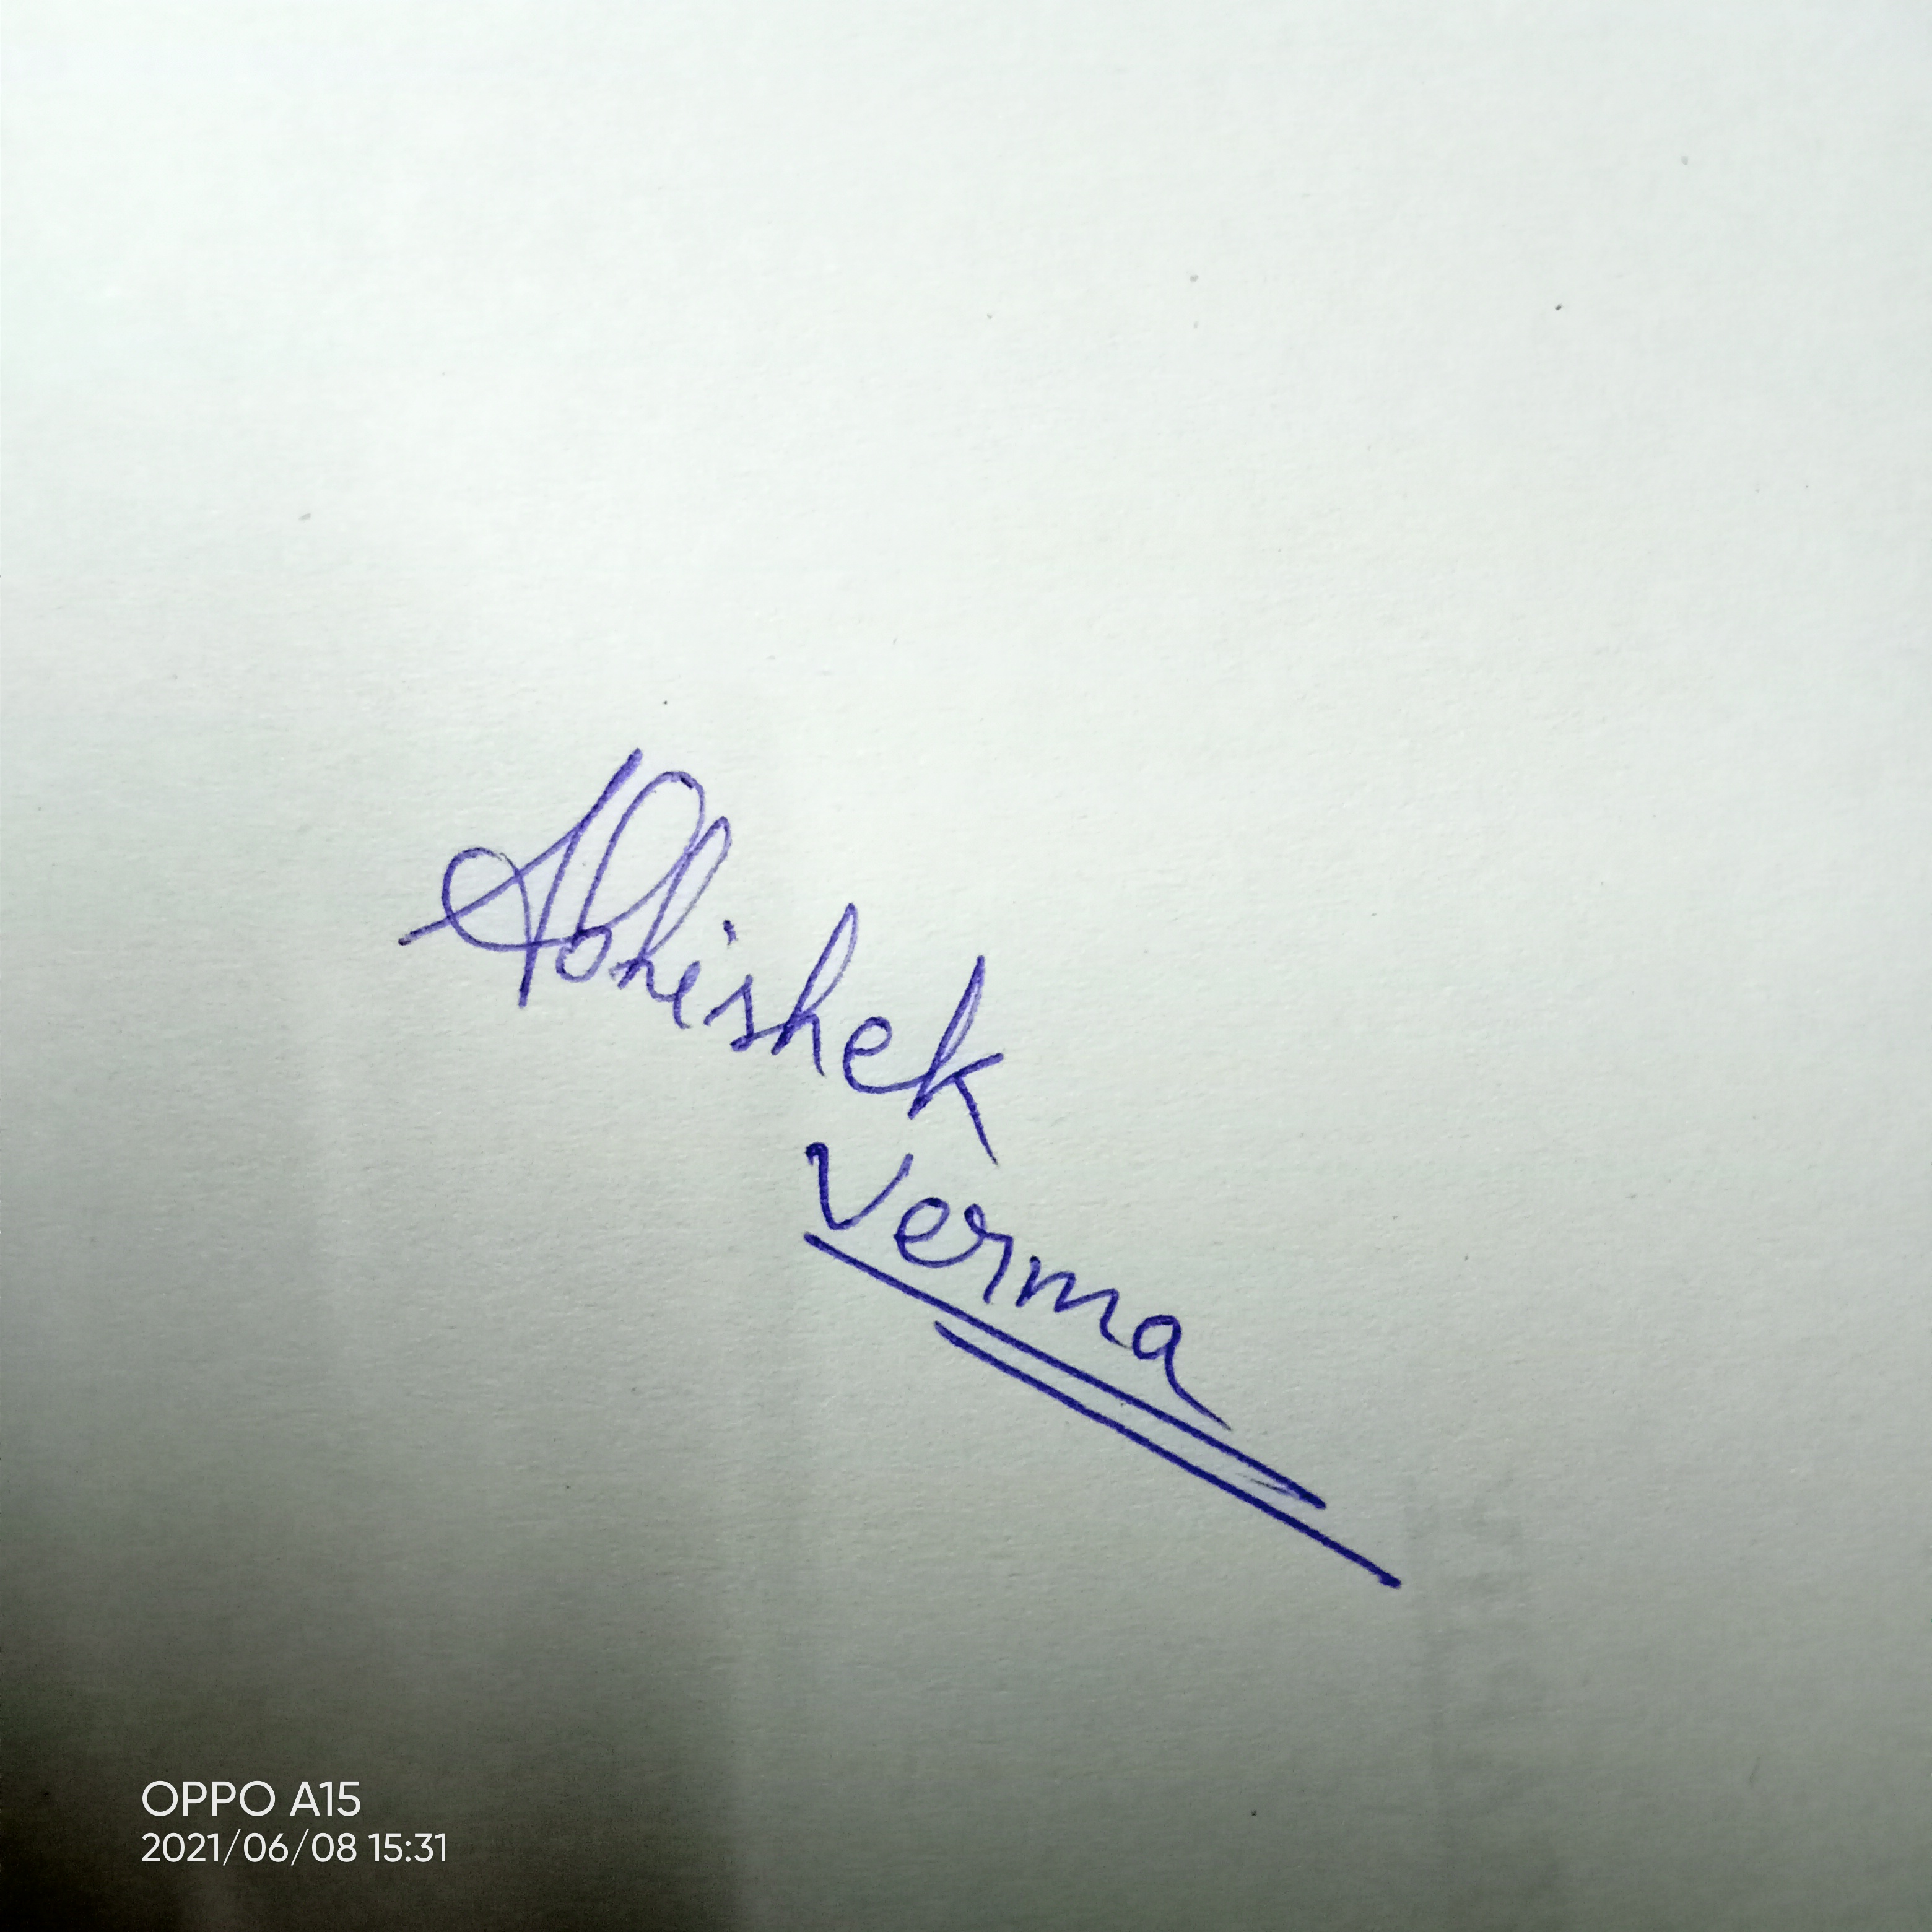 Abhishek
Verma
OPPO A15
2021/06/08 15:31